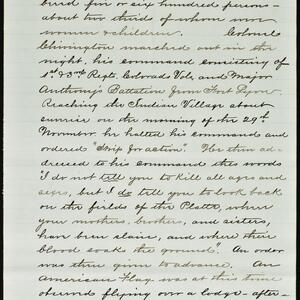 bered five or six hundred persons -
about two third of whom were
women & children. Colonel
Chivington marched out in the
night, his command consisting of
1st & 3rd Regts. Colorado Vols, and Major
Anthony's Battalion from Fort Lyon.
Reaching the Indian Village about
sunrise on the morning of the 29th
November he halted his command and
ordered "strip for action". He then ad-
dressed to his command the words
"I do not tell you to kill all ages and
sexes, but I do tell you to look back
on the fields of the Platte, where
your mothers, brothers, and sisters,
have been slain, and where their
blood soaks the ground". An order
was then given to advance. An
American Flag was at this time
observed flying over a lodge - after-